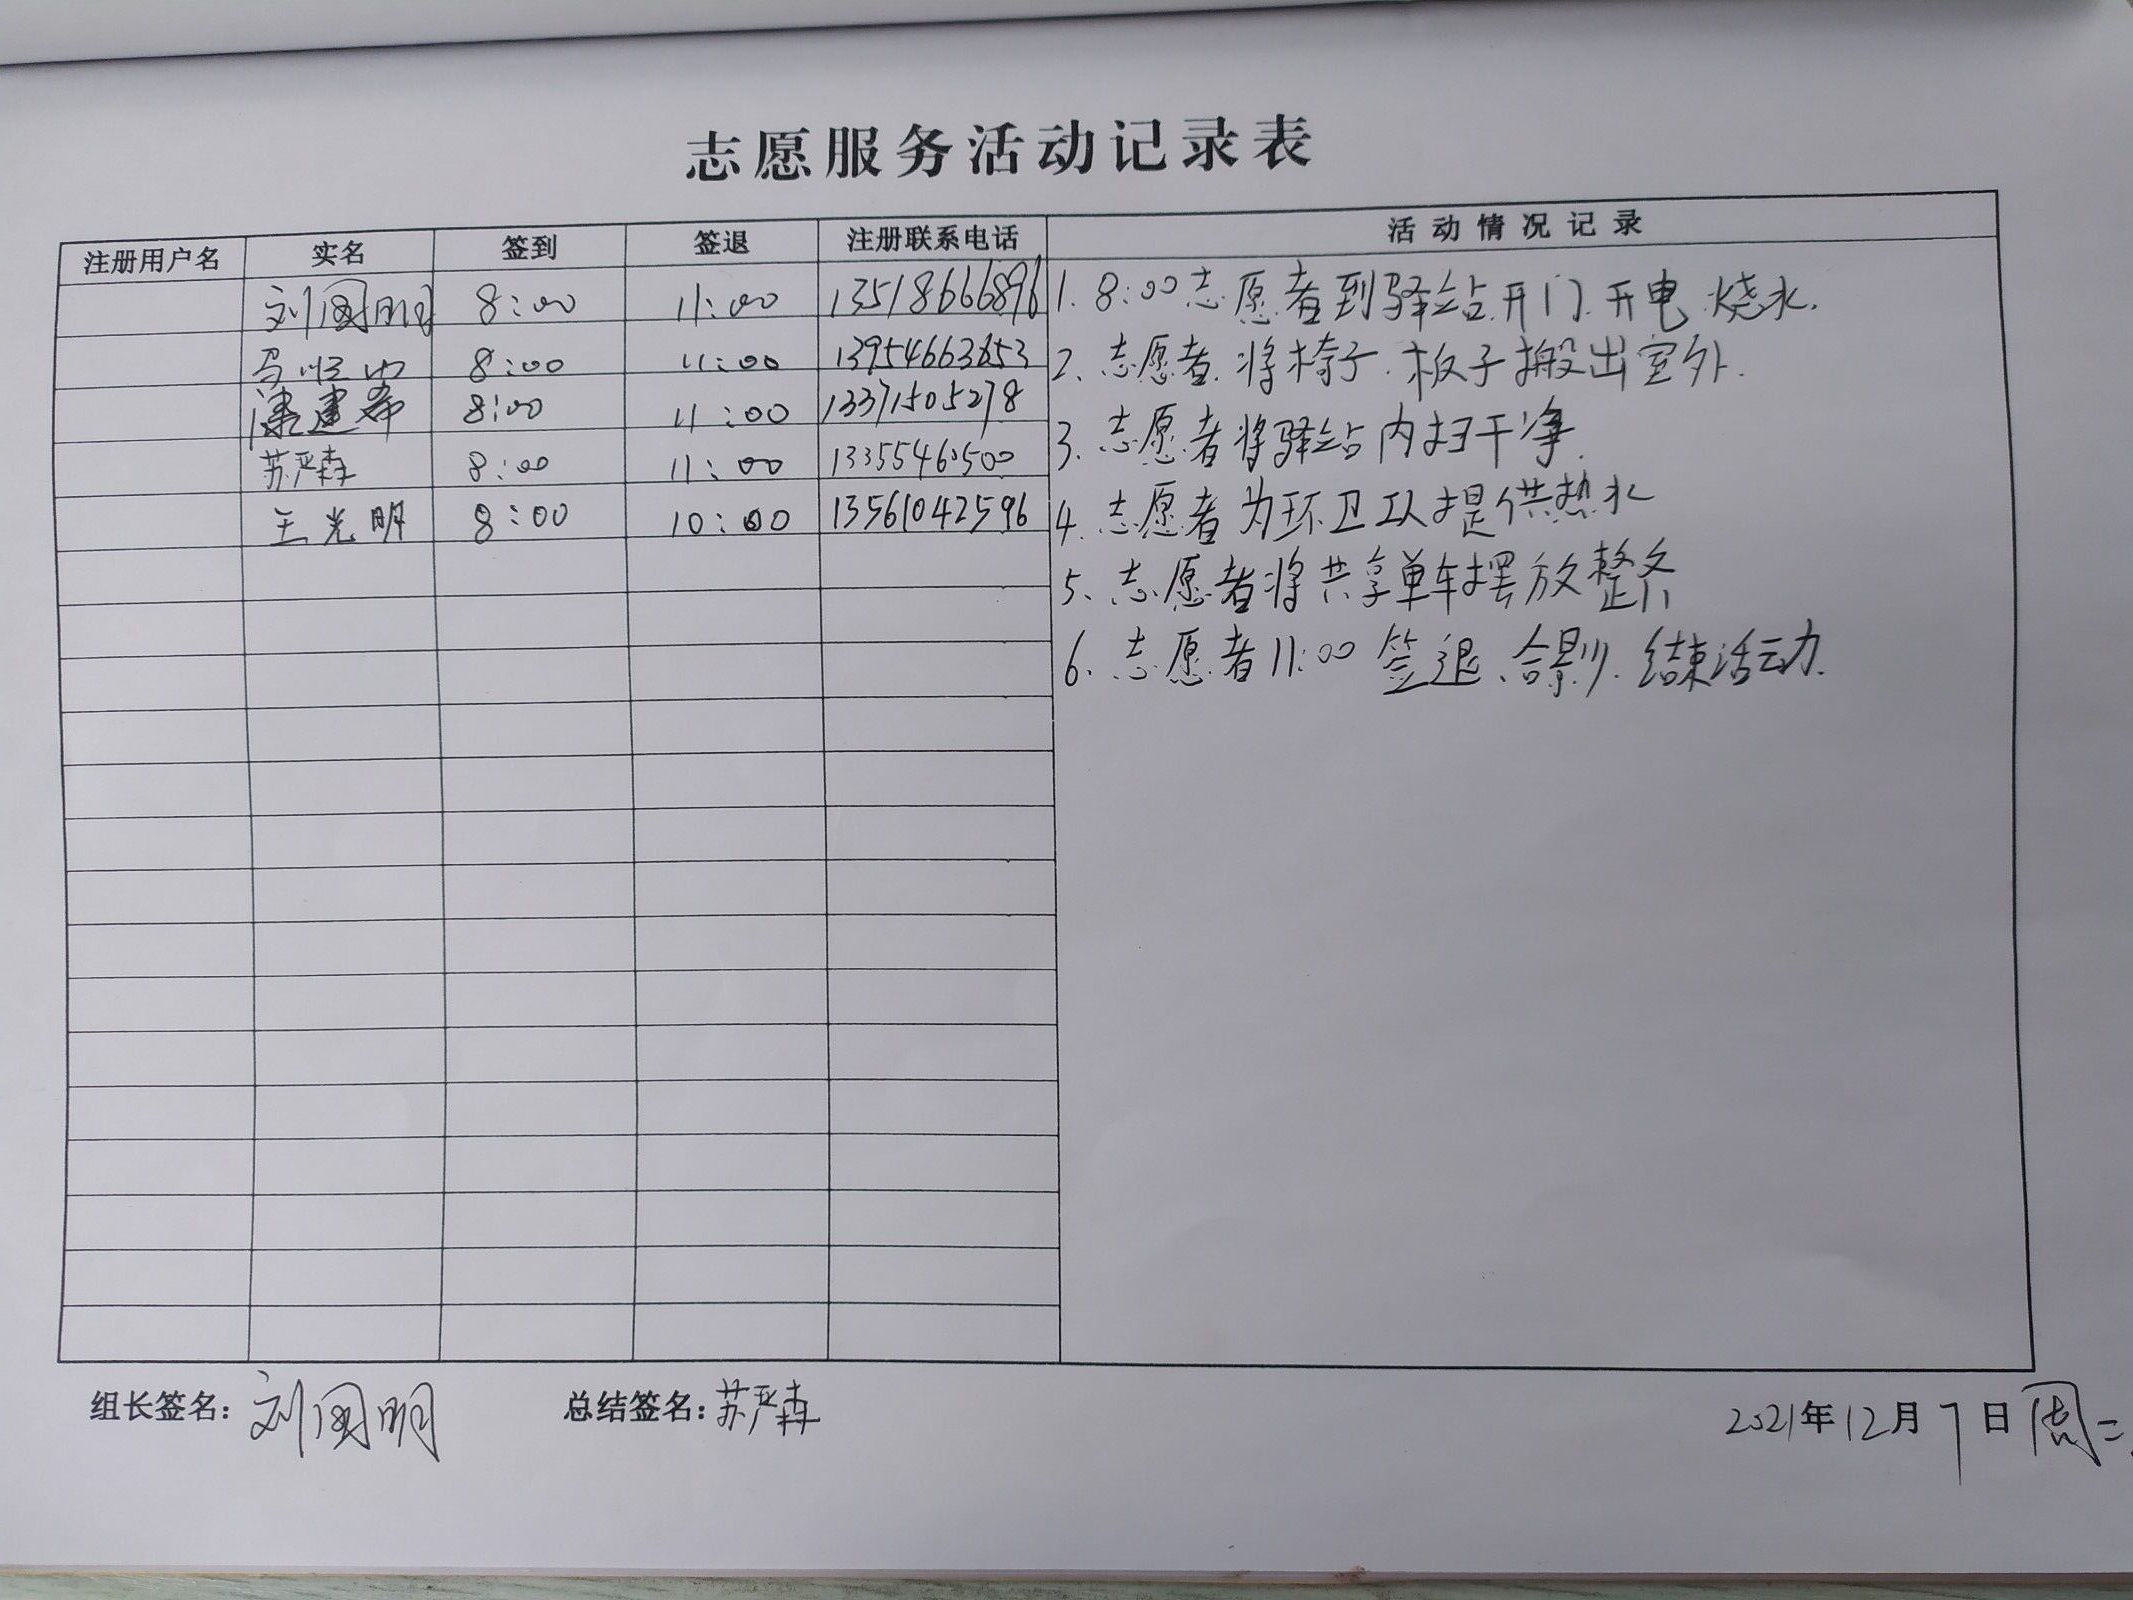 志愿服务活动记录表
注册用户名 实名 签到 签退 注册联系电话 活动情况记录
刘国明 8:00 11:00 13518666896
8:00 11:00
建希 8:00 11:00 13371505278
苏严森 8:00 11:00 13355460500
王光明 8:00 10:00 13561042596
1. 8:00志愿者到驿站.开门.开电.烧水.
2、志愿者.将椅子.板子搬出室外.
3、志愿者将驿站内扫干净.
4、志愿者为环卫工人提供热水
5、志愿者将共享单车摆放整齐
6、志愿者11:00签退、合影.结束活动.
组长签名：刘国明 总结签名：苏严森 2021年12月7日周二